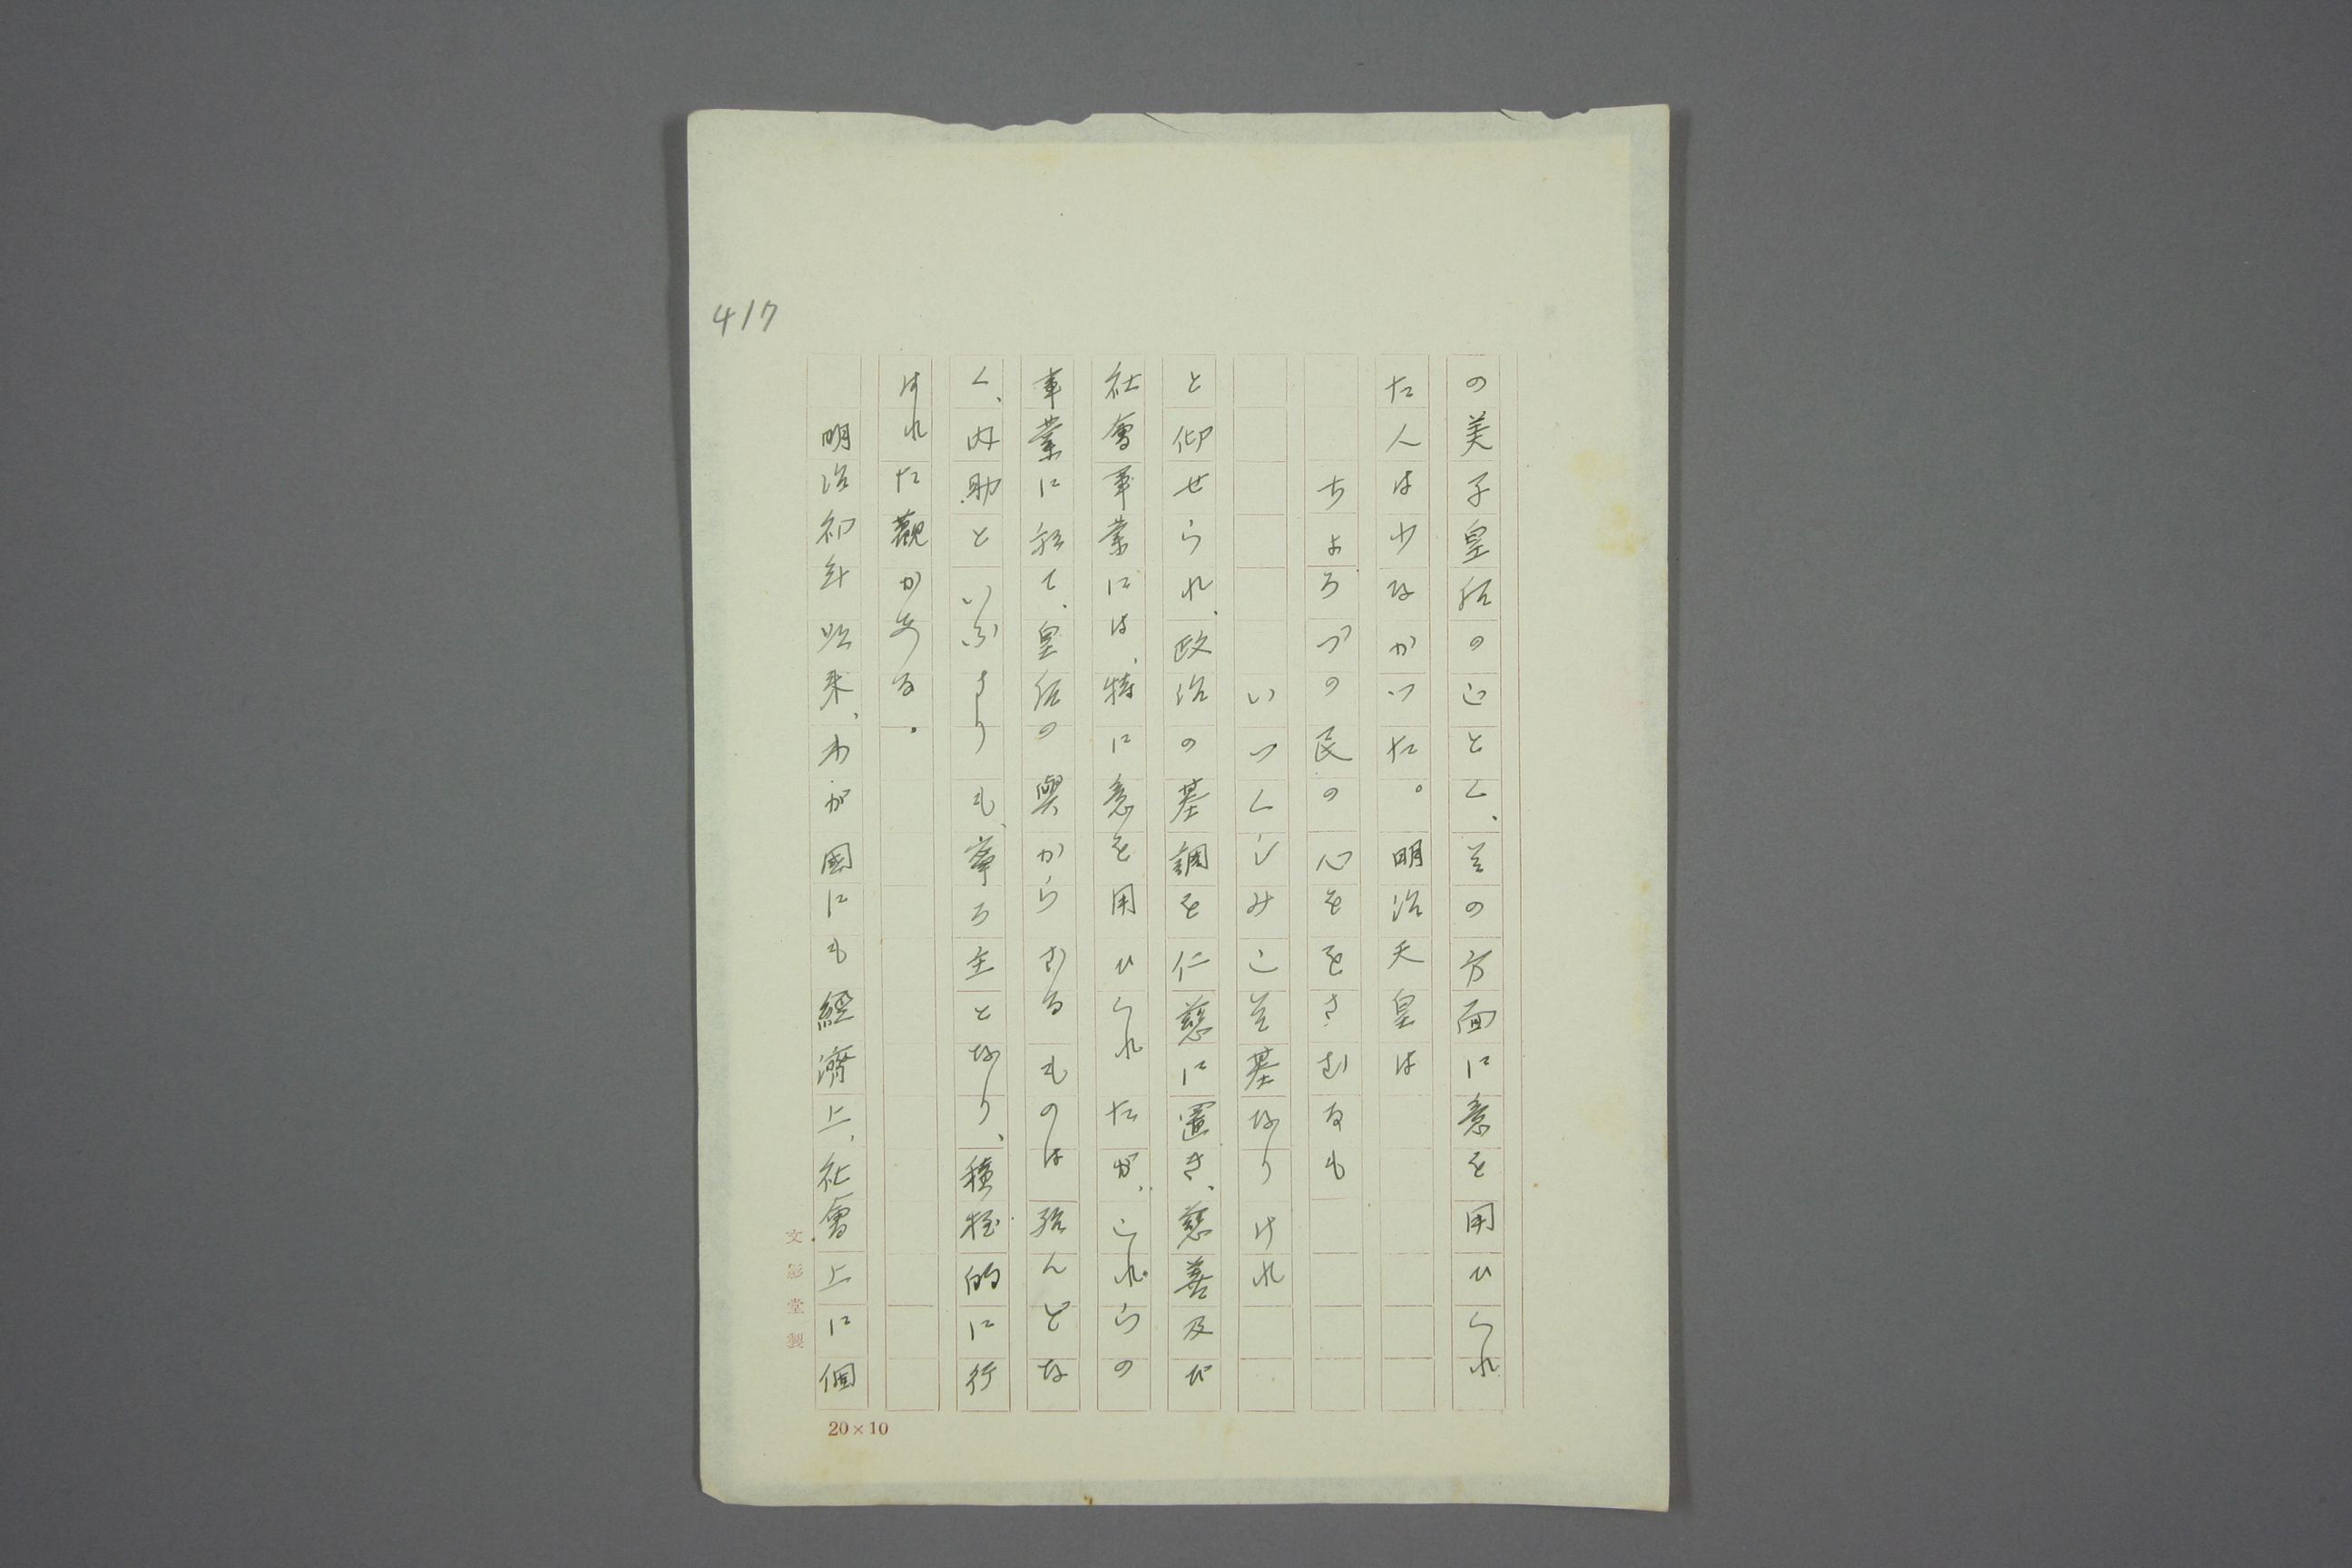 417
の美子皇后のごとく、その方面に意を用ひられ
た人は少なかつた。明治天皇は
ちよろづの民の心ををさむるも
いつくしみこそ基なりけれ
と仰せられ、政治の基調を仁慈に置き、慈善及び
社會事業には、特に意を用ひられたが、これらの
事業に於て、皇后の與からざるものは殆んどな
く、内助といふよりも、寧ろ主となり、積極的に行
はれた觀がある。
明治初年以来、わが國にも經濟上、社會上に個
文影堂製
20×10